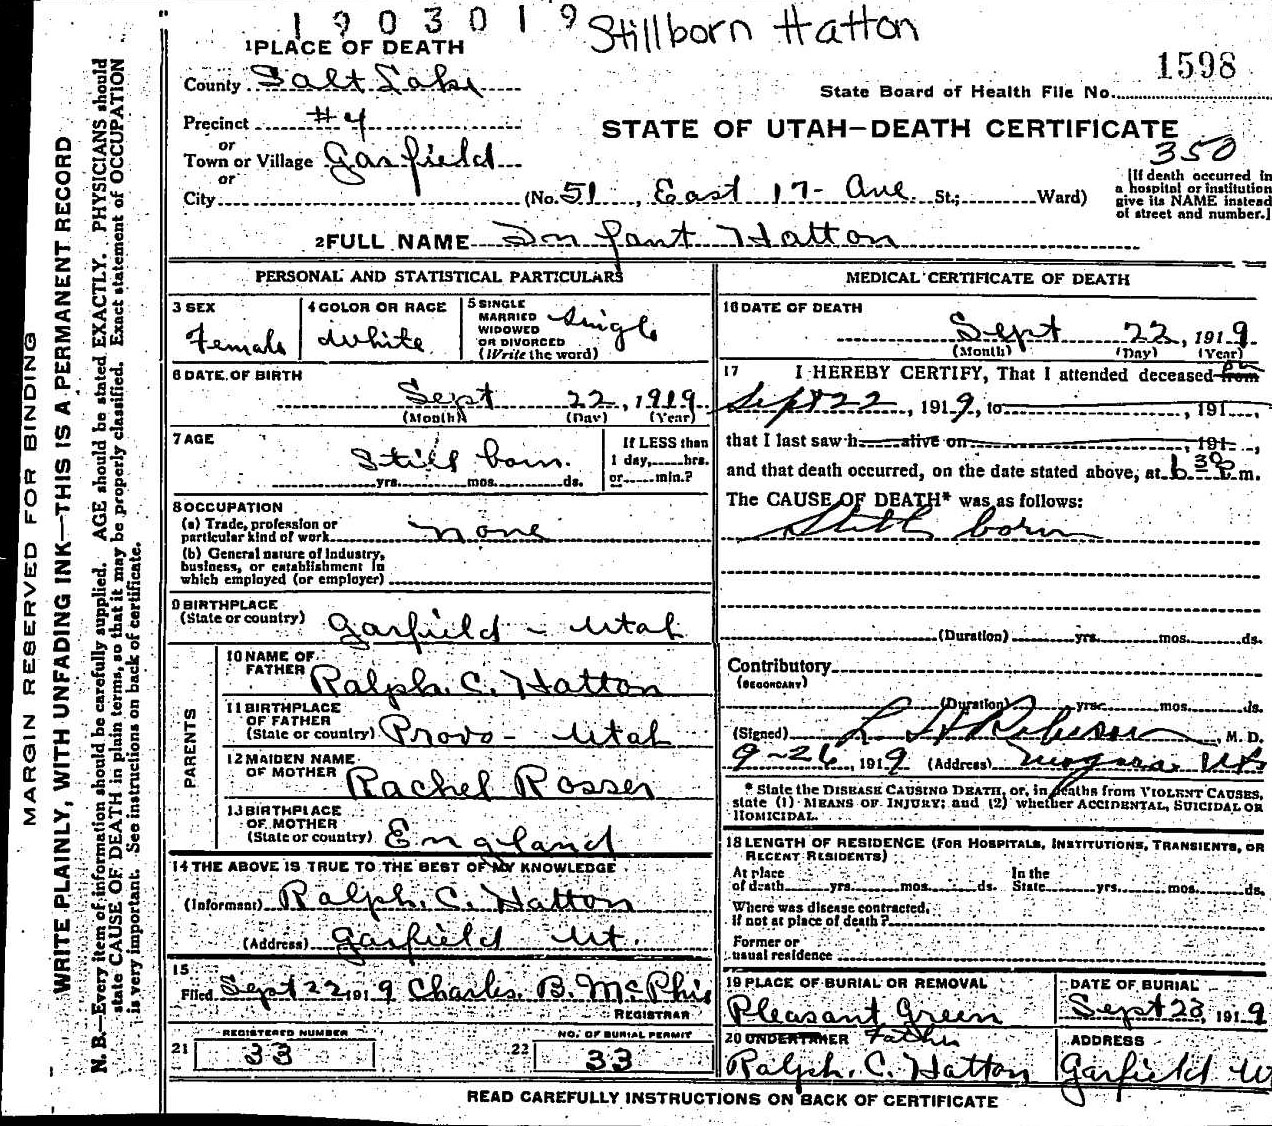 1903019 Stillborn Hatton
1 PLACE OF DEATH
1598
County Salt Lake
State Board of Health File No.
Precinct #4
STATE OF UTAH—DEATH CERTIFICATE
350
or
Town or Village Garfield
or
City (No. 51, East 17- Ave St.; Ward)
[If death occurred in
a hospital or institution
give its NAME instead
of street and number.]
2 FULL NAME Infant Hatton
PERSONAL AND STATISTICAL PARTICULARS
3 SEX
Female
4 COLOR OR RACE
White
5 SINGLE
MARRIED
WIDOWED
OR DIVORCED
(Write the word)
Single
6 DATE OF BIRTH
Sept 22, 1919
(Month) (Day) (Year)
7 AGE
Still born.
yrs. mos. ds.
If LESS than
1 day, hrs.
or min.?
8 OCCUPATION
(a) Trade, profession or
particular kind of work none
(b) General nature of industry,
business, or establishment in
which employed (or employer)
9 BIRTHPLACE
(State or country) Garfield - Utah
PARENTS
10 NAME OF
FATHER Ralph. C. Hatton
11 BIRTHPLACE
OF FATHER
(State or country) Provo - Utah
12 MAIDEN NAME
OF MOTHER Rachel Rosser
13 BIRTHPLACE
OF MOTHER
(State or country) England
14 THE ABOVE IS TRUE TO THE BEST OF MY KNOWLEDGE
(Informant) Ralph. C. Hatton
(Address) Garfield Ut.
15
Filed Sept 22, 1919 Charles. B. McPhie
REGISTRAR
REGISTERED NUMBER
21 33
NO. OF BURIAL PERMIT
22 33
MEDICAL CERTIFICATE OF DEATH
16 DATE OF DEATH
Sept 22, 1919.
(Month) (Day) (Year)
17 I HEREBY CERTIFY, That I attended deceased from on
Sept 22, 1919, to , 191 ,
that I last saw h alive on , 191 ,
and that death occurred, on the date stated above, at 6 30 P m.
The CAUSE OF DEATH* was as follows:
Still born
(Duration) yrs. mos. ds.
Contributory
(SECONDARY)
(Duration) yrs. mos. ds.
(Signed) L H , M. D.
9-26, 1919 (Address) Magna Ut
* State the DISEASE CAUSING DEATH, or, in deaths from VIOLENT CAUSES,
state (1) MEANS OF INJURY; and (2) whether ACCIDENTAL, SUICIDAL OR
HOMICIDAL.
18 LENGTH OF RESIDENCE (FOR HOSPITALS, INSTITUTIONS, TRANSIENTS, OR
RECENT RESIDENTS)
At place
of death yrs. mos. ds.
In the
State yrs. mos. ds.
Where was disease contracted,
if not at place of death?
Former or
usual residence
19 PLACE OF BURIAL OR REMOVAL
Pleasant Green
DATE OF BURIAL
Sept 23, 1919
20 UNDERTAKER Father
Ralph. C. Hatton
ADDRESS
Garfield Ut
READ CAREFULLY INSTRUCTIONS ON BACK OF CERTIFICATE
MARGIN RESERVED FOR BINDING
WRITE PLAINLY, WITH UNFADING INK—THIS IS A PERMANENT RECORD
N. B.—Every item of information should be carefully supplied. AGE should be stated EXACTLY. PHYSICIANS should
state CAUSE OF DEATH in plain terms, so that it may be properly classified. Exact statement of OCCUPATION
is very important. See instructions on back of certificate.